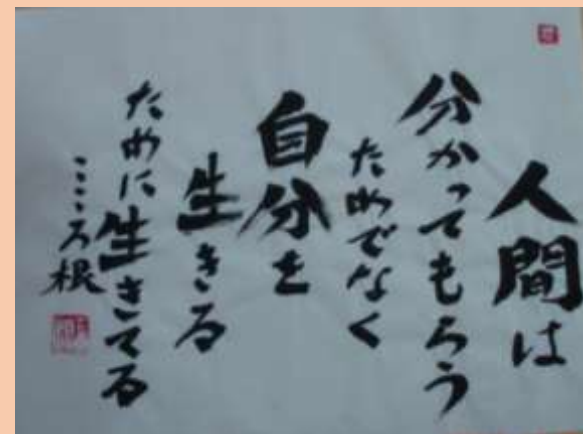 人間は
分かってもらう
ためでなく
自分を
生きる
ために生きてる
こころ根